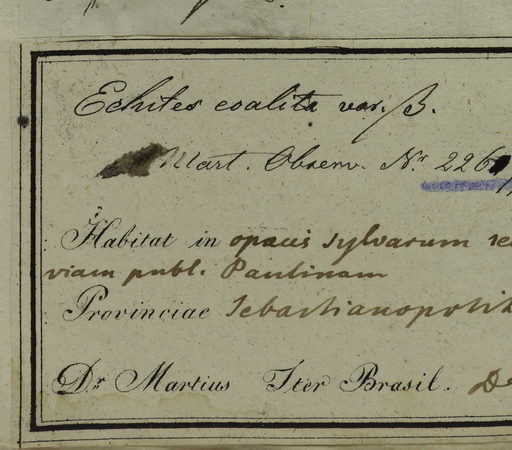 Echites coalita var. β.
Mart. Observ. Nr. 226
Habitat in opacis sylvarum
viam publ. Paulinam
Provinciae Sebastianopolit
Dr. Martius Iter Brasil.